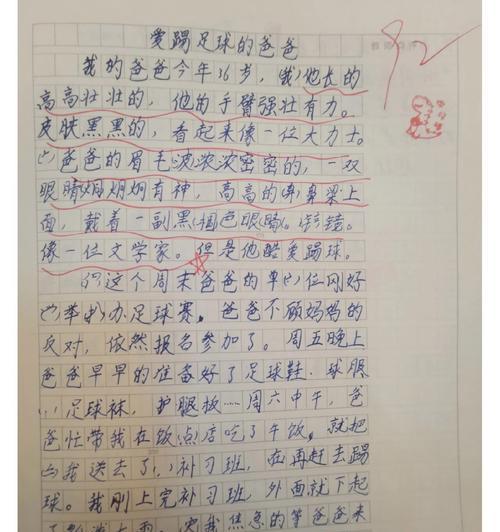 爱踢足球的爸爸
92
我的爸爸今年36岁,他长的
高高壮壮的,他的手臂强壮有力。
皮肤黑黑的,看起来像一位大力士。
爸爸的眉毛浓浓密密的,一双
眼睛炯炯有神,高高的鼻梁上
面,戴着一副黑棕色眼睛。
像一位文学家。但是他酷爱踢球。
这个周末爸爸的单位刚好
举办足球赛。爸爸不顾妈妈的
反对,依然报名参加了。周五晚上
爸爸早早的准备好了足球鞋.球服
足球袜,护腿板……周六中午,爸
爸忙带我在饭店吃了午饭,就把
我送去了补习班,在再赶去踢
球。我刚上完补习班,外面就下起
大雨。我焦急的等爸爸来